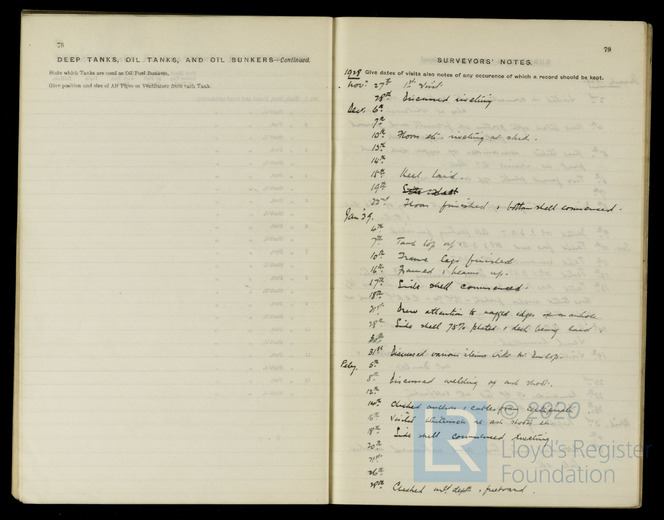 78
DEEP TANKS, OIL TANKS, AND OIL BUNKERS—Continued.
State which Tanks are used as Oil Fuel Bunkers.
Give position and size of Air Pipes or Ventilators from each Tank.
79
SURVEYORS' NOTES.
1928 Give dates of visits also notes of any occurence of which a record should be kept.
Nov. 27th 1st Visit.
28th Discussed riveting
Dec. 6th
7th
10th Floors etc. riveting at shed.
13th
14th
18th Keel laid.
19th
22nd Floors finished & bottom shell commenced.
Jan '29.
4th
7th Tank top up
10th Frame legs finished
16th Framed & beams up.
17th Side shell commenced.
18th
21st Drew attention to ragged edges on manhole
28th Side shell 75% plated & deck being laid
30th
31st Discussed various items with Mr Dunlop.
Feby. 5th
8th Discussed welding of ash shoot.
12th
14th Checked anchors & cables from
15th Visited re ash shoots etc
18th Side shell commenced riveting
20th
21st
26th
28th Checked mld depth & freeboard.
© 2020
LR
Lloyd's Register
Foundation